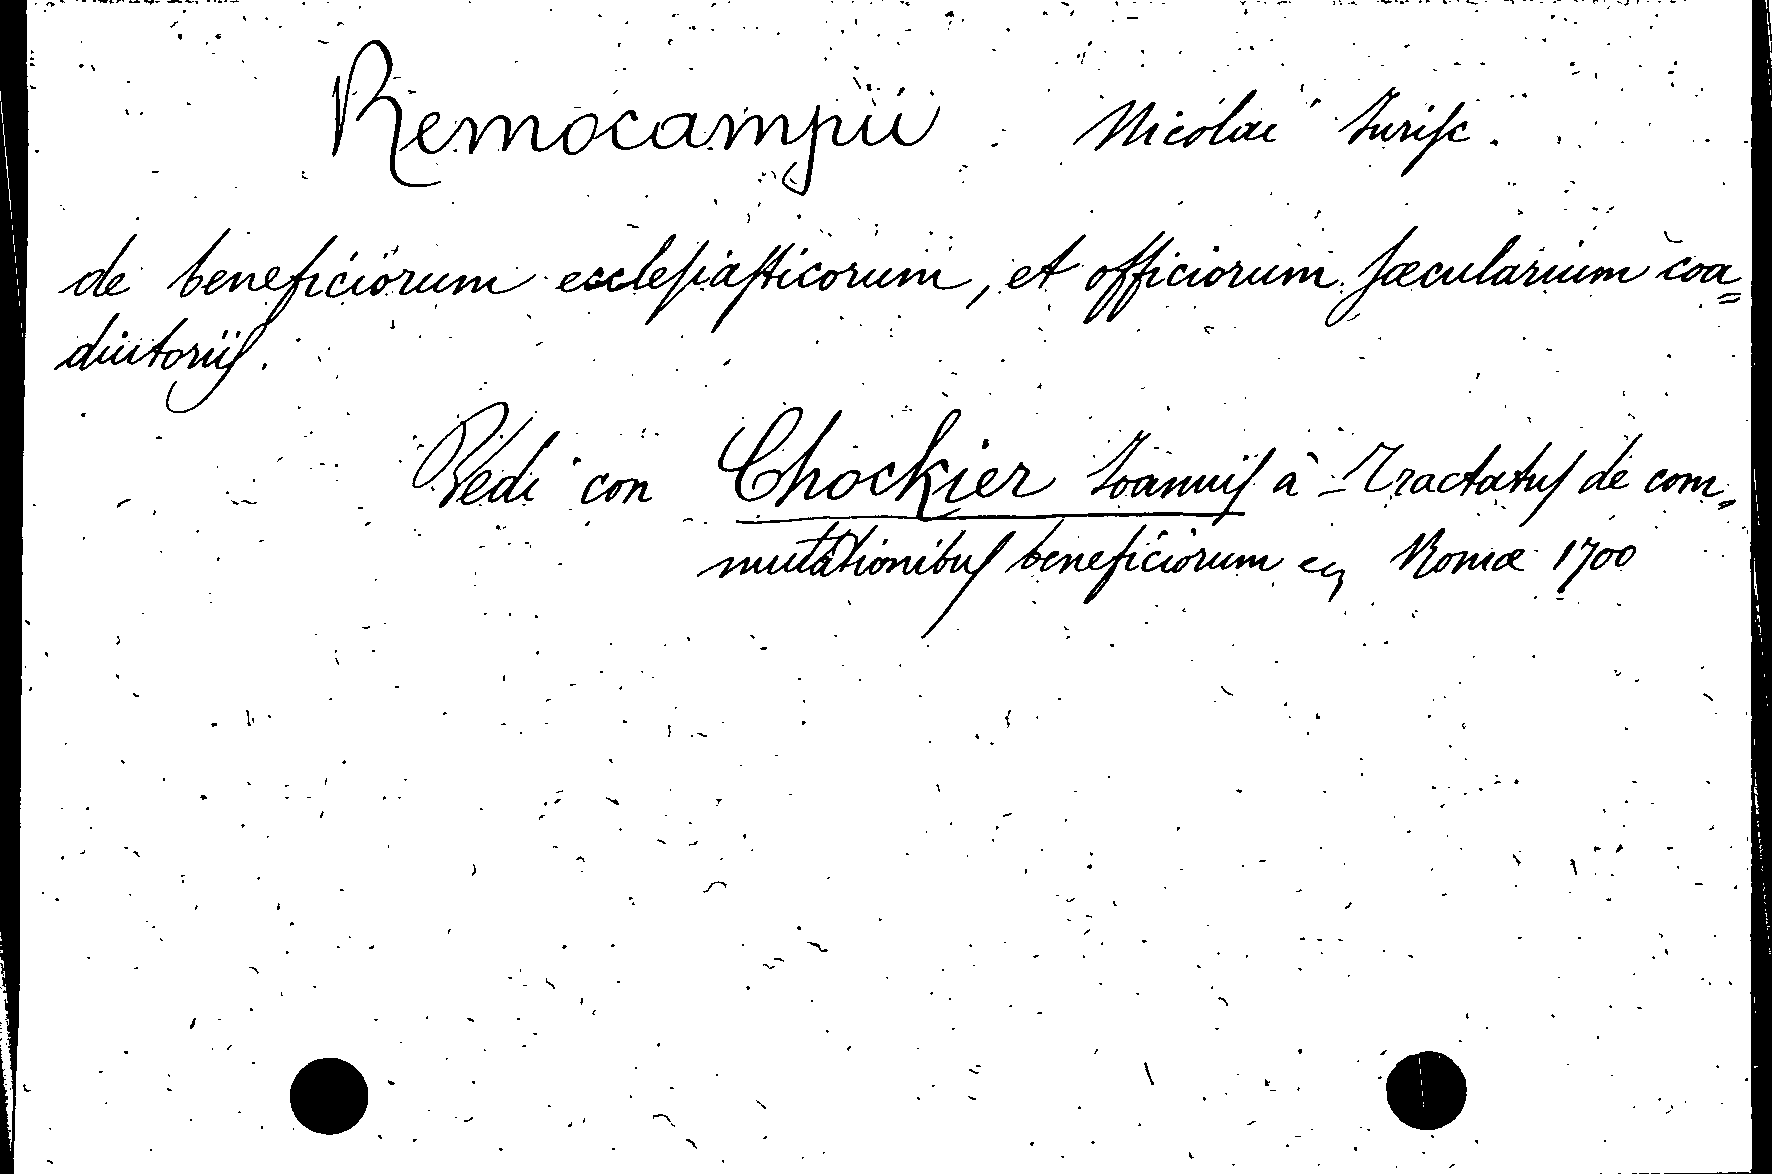 Remocampii . Nicolai Jurisc .
de beneficiorum ecclesiasticorum, et officiorum sæcularium coa=
diutoriis.
Vedi con Chockier Joannis à - Tractatus de com=
mutationibus beneficiorum ec, Romæ 1700